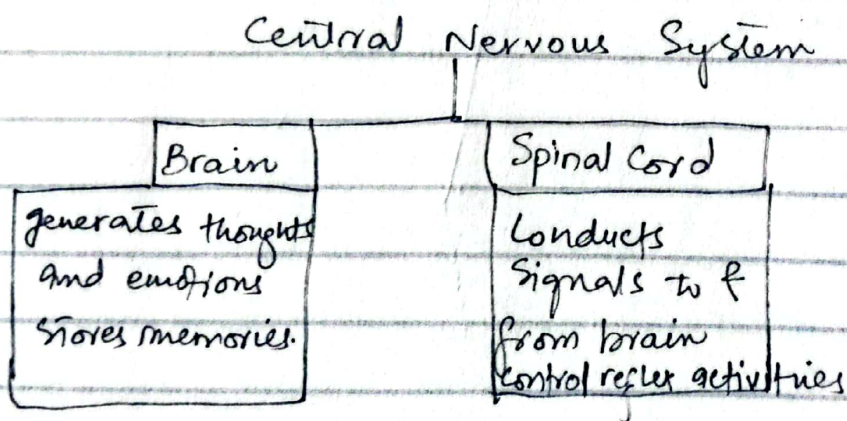 Central Nervous System
Brain
Spinal Cord
generates thoughts
and emotions
stores memories.
Conducts
Signals to &
from brain
control reflex activities